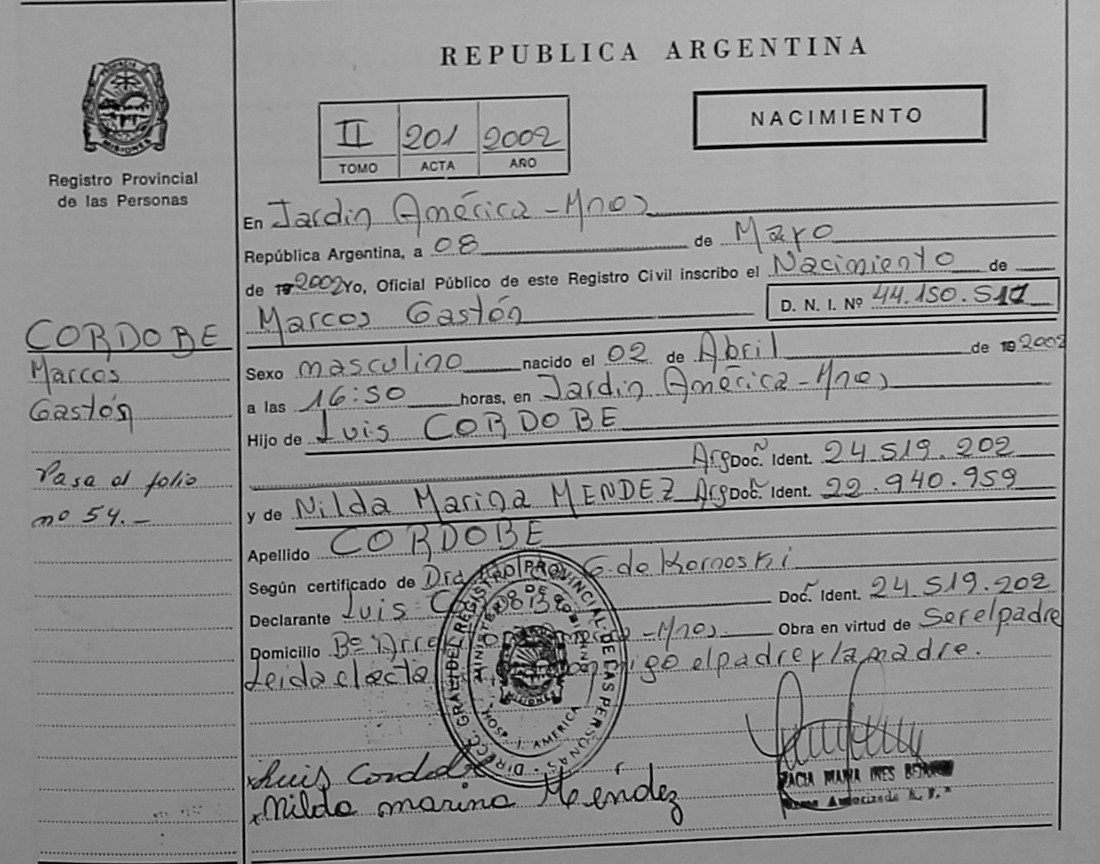 REPUBLICA ARGENTINA
PROVINCIA DE
MISIONES
Registro Provincial
de las Personas
II 201 2002
TOMO ACTA AÑO
NACIMIENTO
En Jardín América - Mnes
República Argentina, a 08 de Mayo
de 2002 Yo, Oficial Público de este Registro Civil inscribo el Nacimiento de
Marcos Gastón D. N. I. Nº 44.150.517
CORDOBE
Marcos
Gastón
Pasa al folio
nº 54.-
Sexo masculino nacido el 02 de Abril de 2002
a las 16:50 horas, en Jardín América - Mnes
Hijo de Luis CORDOBE
Arg Doc. Ident. 24.519.202
y de Nilda Marina MENDEZ Arg Doc. Ident. 22.940.959
Apellido CORDOBE
Según certificado de Dra. G. de Kornoski
Declarante Luis Doc. Ident. 24.519.202
Domicilio Bº - Mnes. Obra en virtud de Ser el padre
Leida el acta el padre y la madre.
DIRECC. GRAL. DEL REGISTRO PROVINCIAL DE LAS PERSONAS
MINISTERIO DE GOBIERNO
MISIONES
HOSP. J. AMERICA
Luis
Nilda marina Méndez
MARIA INES
Autorizada